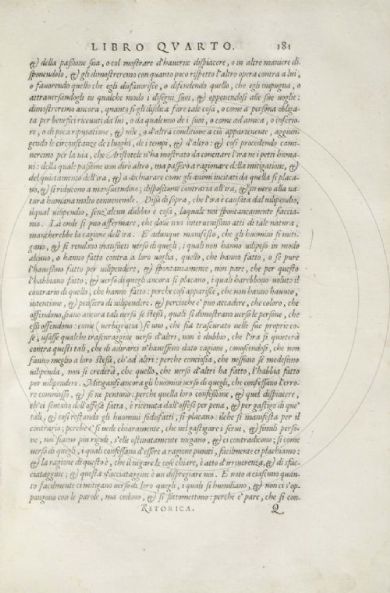 LIBRO QVARTO. 181
& della passione sua, o col mostrare d'haverne dispiacere, o in altre maniere di
sponendolo. & gli dimostreremo con quanto poco rispetto l'altro opera contra a lui,
o favorendo quello che egli disfavorisce, o disfavorendo quello, che egli
attraversandogli in qualche modo i disegni suoi, & opponendosi alle sue voglie:
dimostreremo ancora, quanto si gli disdica fare tale cosa, o come a persona obliga-
ta per beneficij ricevuti da lui, o da qualcuno de i suoi, o come ad amico, o inferio-
re, o di poca riputatione, & vile, o d'altra conditione a ciò appartenente, aggiun-
gendo le circonstanze de i luoghi, de i tempi, & d'altro: & così procedendo cami-
neremo per la via, che Aristotele n'ha mostrato da concitare l'ira ne i petti huma-
ni: della quale passione non dirò altro, ma passerò a ragionare della mitigatione, &
del quietamento dell'ira, & a dichiarare come gli huomini incitati da quella si placa-
no, & si riducono a mansuetudine; dispositione contraria all'ira, & in vero alla na-
tura humana molto convenevole. Dissi di sopra, che l'ira è causata dal vilipendio,
il qual vilipendio, senz'alcun dubbio è cosa, la quale noi spontaneamente faccia-
mo. La onde si può affermare, che dove non intervenissino atti di tale natura,
mancherebbe la cagione dell'ira. E adunque manifesto, che gli huomini si miti-
gano, & si rendono mansueti verso di quegli, i quali non hanno vilipesi in modo
alcuno, o hanno fatto contra a loro voglia, quello, che hanno fatto, o se pure
l'havessino fatto per vilipendere, & spontaneamente, non pare, che per questo
l'habbiano fatto. & verso di quegli ancora si placano, i quali harebbono voluto il
contrario di quello, che hanno fatto: perché si apparisce, che non hanno havuto,
intentione, & pensiero di vilipendere. & percioche e' può accadere, che coloro, che
offendono, sono ancora tali verso se stessi, quali si dimostrano verso le persone, che
essi offendono: come (verbigratia) se uno, che sia trascurato nelle sue proprie co-
se, usasse qualche trascuraggine verso d'altri, non è dubbio, che l'ira si quieterà
contra questi tali, che di adirarsi n'havessino dato cagione, conoscendosi, che non
fanno meglio a loro stessi, ch'ad altri: perche conciosia, che nessuno se medesimo
vilipenda, non si crederà, che quello, che verso d'altri ha fatto, l'habbia fatto
per vilipendere. Mitigansi ancora gli huomini verso di quegli, che confessano l'erro-
re commesso, & si ne pentono: perche quella loro confessione, & quel dispiacere,
ch'essi sentono dell'offesa fatta, è ricevuta dall'offeso per pena, & per gastigo di que'
tali, & così restando gli huomini sodisfatti, si placano. il che si manifesta per il
contrario; perche e' si vede chiaramente, che nel gastigare i servi, & simili perso-
ne, noi siamo più rigidi, s'elle ostinatamente negano, & ci contradicono: si come
verso di quegli, i quali confessano d'essere a ragione puniti, facilmente ci plachiamo:
& la ragione di questo è, che il negare le cose chiare, è atto d'irriverenza, & di sfac-
ciataggine; & questa sfacciataggine è un dispregiare noi. E noto a ciascuno quan-
to facilmente ci mitigano verso di loro quegli, i quali si humiliano, & non ci s'op-
pongono con le parole, ma cedono, & si sottomettono: perche e' pare, che si con
RETORICA. Q